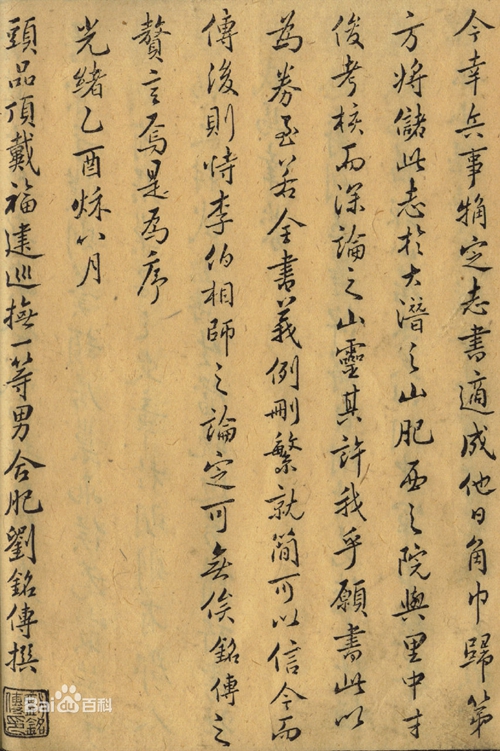 今幸兵事犅定志書適成他日角巾歸第
方將儲此志於大潛之山肥西之院與里中才
俊考核而深論之山靈其許我乎願書此以
為券至若全書義例刪繁就簡可以信今而
傳後則恃李伯相師之論定可無俟銘傳之
贅言焉是為序
光緒乙酉秌八月
頭品頂戴福建巡撫一等男合肥劉銘傳撰
Bai百科